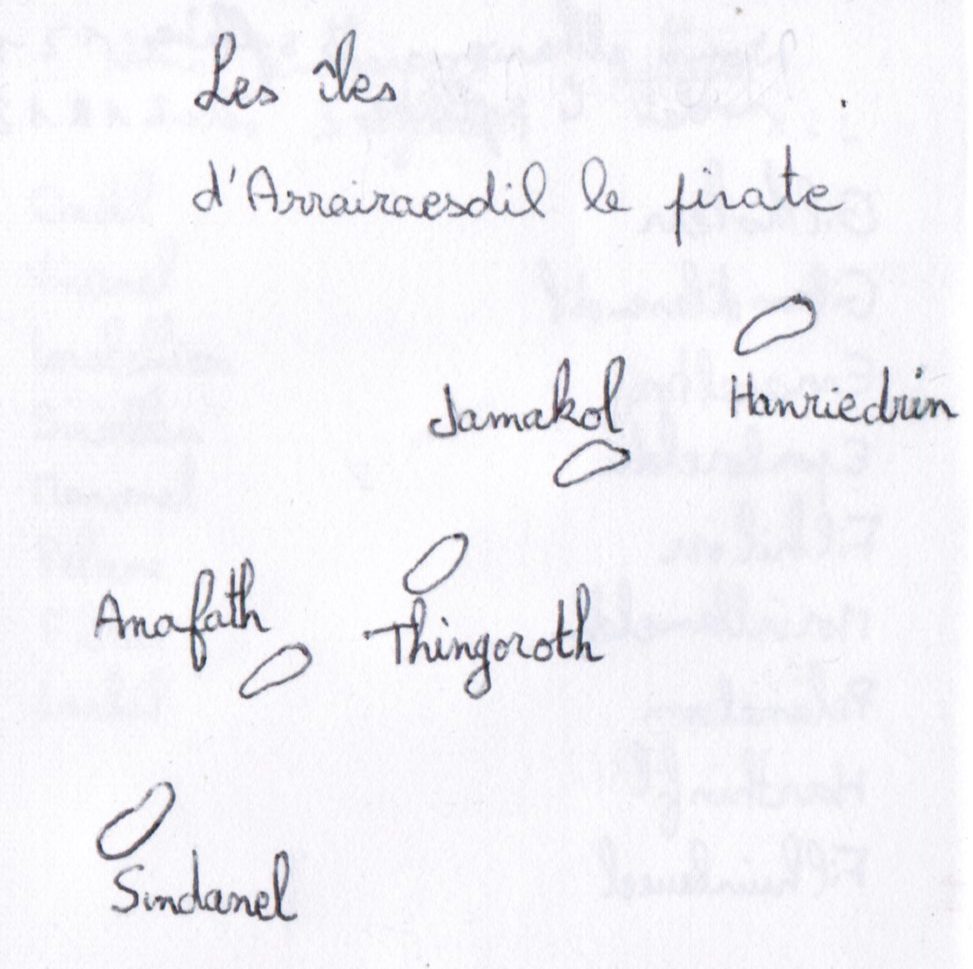 Les îles
d'Arrairaesdil le pirate
Hanriedrin
Jamakol
Anafath
Thingoroth
Sindanel